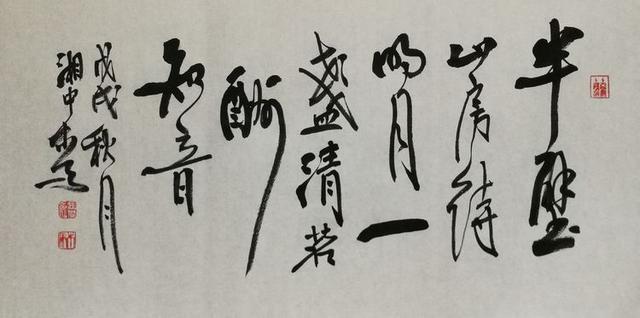 半壁
山房待
明月一
盏清茗
酬
知音
戊戌秋月
湘中